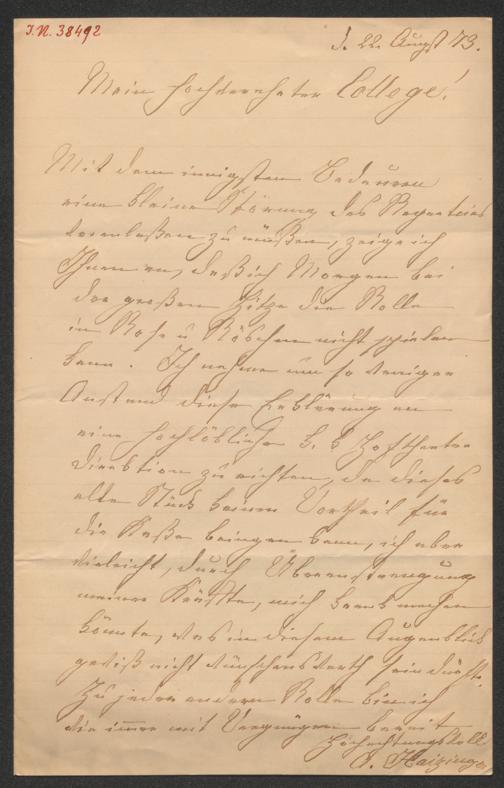 I.N. 38492
d. 22. Augst 73.
Mein hochverehrter College!
Mit dem innigsten Bedauern
eine kleine Störung des Repertoirs
veranlaßen zu müßen, zeige ich
Ihnen an, daß ich Morgen bei
der großen Hitze die Rolle
in Rose u Röschen nicht spielen
kann. Ich nehme um so weniger
Anstand diese Erklärung an
eine hochlöbliche k. k Hoftheater
direktion zu richten, da dieses
alte Stück keinen Vortheil für
die Kaße bringen kann, ich aber
vieleicht, durch Überanstrengung
meiner Kräfte, mich krank machen
könnte, was in diesem Augenblick
gewiß nicht wünschenswerth sein dürfte.
Zu jeder andern Rolle bin ich
wie immer mit Vergnügen bereit
Hochachtungsvoll
A. Haizinger